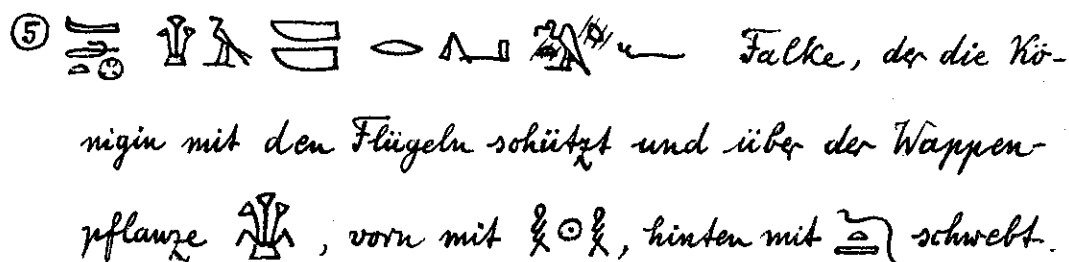 ⑤ 𓂋 𓆑 Falke, der die Kö-
nigin mit den Flügeln schützt und über der Wappen-
pflanze , vorn mit 𓎛𓇳𓎛, hinten mit schwebt.